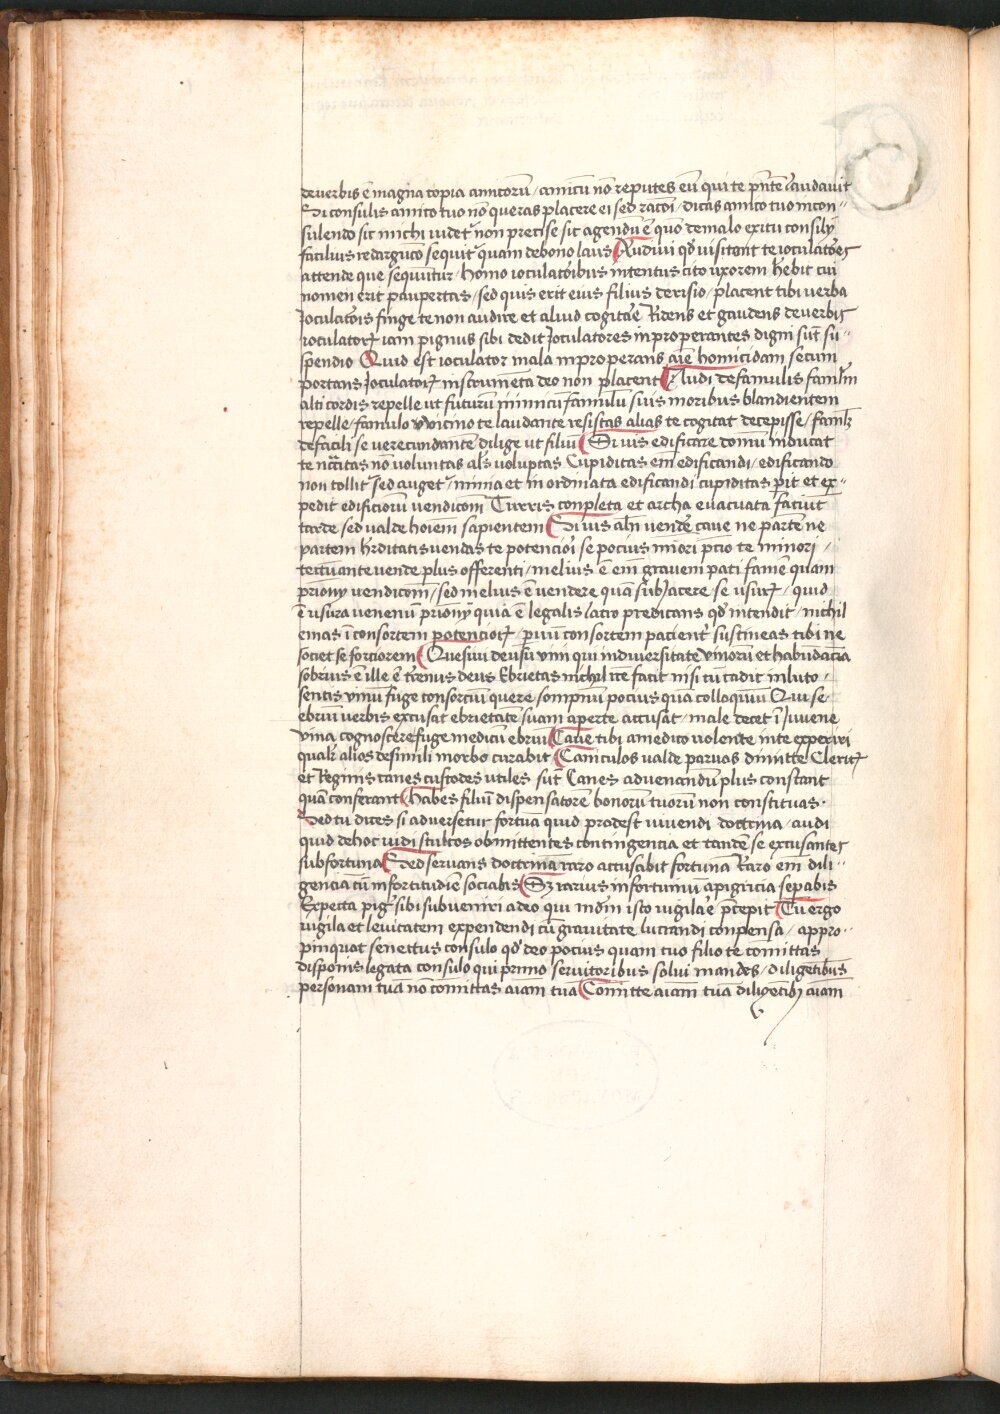 de verbis ē magna copia amicorū / amicū nō reputes eū qui te pn̄te laudavit
Si consulis amico tuo nō queras placere ei sed rac̄oi / dicas amico tuo in con-
sulendo sic michi videtʳ non precise sic agendū ē quō de malo exitu consilij
facilius redargutō sequitʳ quam de bono laus Audivi qd̓ visitant te ioculatōes
attende que sequūtur / homo ioculatoibus intentus cito uxorem hēbit cui
nomen erit paupertas / sed quis erit eius filius derisio / placent tibi verba
Joculatoīs finge te non audire et aliud cogitāe Ridens et gaudens de verbis
ioculatorꝝ iam pignus sibi dedit Joculatores inproperantes digni sūt su-
spendio Quid est ioculator mala inproperans aīe homicidam secum
portans Joculatorꝝ instrumēta deo non placent Audi de famulis famlm̄
alti cordis repelle ut futurū inimicū famulū suis moribus blandientem
repelle / famulo vicino te laudante resistas alias te cogitat decepisse / famlꝫ
de facili se verecundantē dilige ut filiū Si vis edificare domū inducat
te nc̄citas nō voluntas als̄ voluptas Cupiditas em̄ edificandi / edificando
non tollitʳ sed augetʳ / nimia et inordinata edificandi cupiditas pīt et ex-
pedit edificiorū vendicōm Turris conpleta et archa evacuata faciūt
tarde sed valde hoiēm sapientem Si vis aln̄ vende᷑ cave ne partē ne
partem hrditatis vendas te potencioi᷑ se pocius miori pc̄io te minori /
tectuante vende plus offerenti / melius ē em̄ gravem pati famē quam
prionij vendicōm / sed melius ē vendere quā subiacere se usurꝝ / quid
ē usura venenū prionij quia ē legalis latio predicans qd̓ intendit / nichil
emas ī consortem potenciorꝝ / pvuū consortem pacientʳ sustineas tibi ne
societ se forciorem Quesivi de usu vini qui in diversitate vinorū et habūdācia
sobrius ē ille ē tr̄enus deus Ebrietas nichil r̄cte facit nisi cū cadit in luto /
sentis vinū fuge consorciū quere sompnū pocius quā colloquiū Qui se
ebriū verbis excusat ebrietatē suam aperte accusat / male decet ī Juvene
vina cognoscere fuge medicū ebriū Cave tibi a medico volente in te experiri
qualꝛ alios de simili morbo curabit Caniculos valde parvos dimitte Clericꝝ
et Reginis canes custodes utiles sūt Canes ad venandū plus constant
quā conferant Habes filiū dispensatorē bonorū tuorū non constituas /
Sed tu dices si adversetur fortūa quid prodest vivendi doctrina / audi
quid de hoc vidi stultos obmittentes contingencia et tandē se excusantes
sub fortuna Sed servans doctrinā raro accusabit fortunā Raro em̄ dili-
gencia cū infortitudiē sociabis Sꝫ rarius infortuniū a pigricia sepabis
Expecta pigʳ sibi subveniri a deo qui indm̄ isto vigilāe pr̄cepit Tu ergo
vigila et levitatem expendendi cū gravitate lucrandi conpensa / appro-
pinquat senectus consulo qd̓ deo pocius quam tuo filio te com̄ittas
disponis legata consulo qui primo servitoribus solvi mandes / diligētibus
personam tuā nō com̄ittas aīam tuā Com̄itte aīam tuā diligētibꝫ aīam